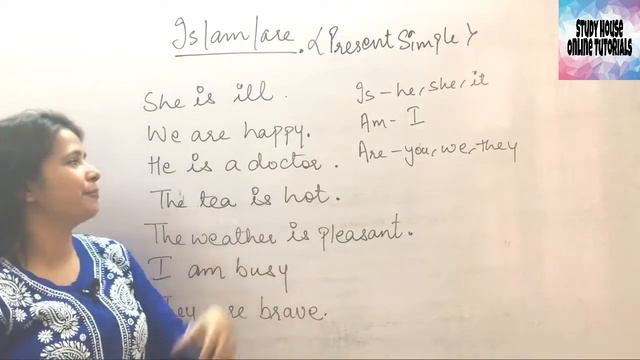 Is/am/are. (Present Simple)
She is ill.
We are happy.
He is a doctor.
The tea is hot.
The weather is pleasant.
I am busy
They are brave.
Is - he, she, it
Am - I
Are - you, we, they
STUDY HOUSE
ONLINE TUTORIALS